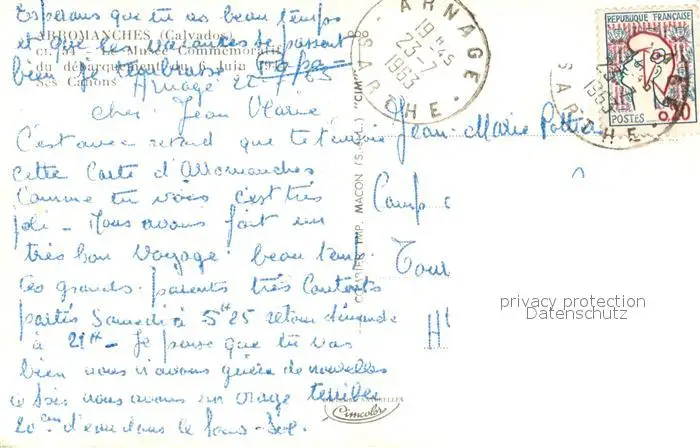 Esperons que tu as beau temps
et que les vacances se passent
bien je t'embrasse
ARROMANCHES (Calvados)
Musée Commémoratif
du débarquement du 6 Juin
Ses Canons
Arnage 22/7/63
cher Jean Marie
C'est avec retard que je t'envoie
cette Carte d'Arromanches
Comme tu vois c'est très
joli - Nous avons fait un
très bon voyage. beau temps.
Tes grands-parents très contents
partis Samedi à 5H25 retour dimanche
à 21H - Je pense que tu vas
bien nous n'avons guère de nouvelles
ce soir nous avons un orage terrible
20cm d'eau dans le sous-sol.
IMP. MACON (S.-&-L.) "CIM"
Cimcolor
ARNAGE
19H45
23-7
1963
SARTHE
REPUBLIQUE FRANÇAISE
POSTES 0,20
1963
SARTHE
Jean-Marie
Camp
Tour
privacy protection
Datenschutz